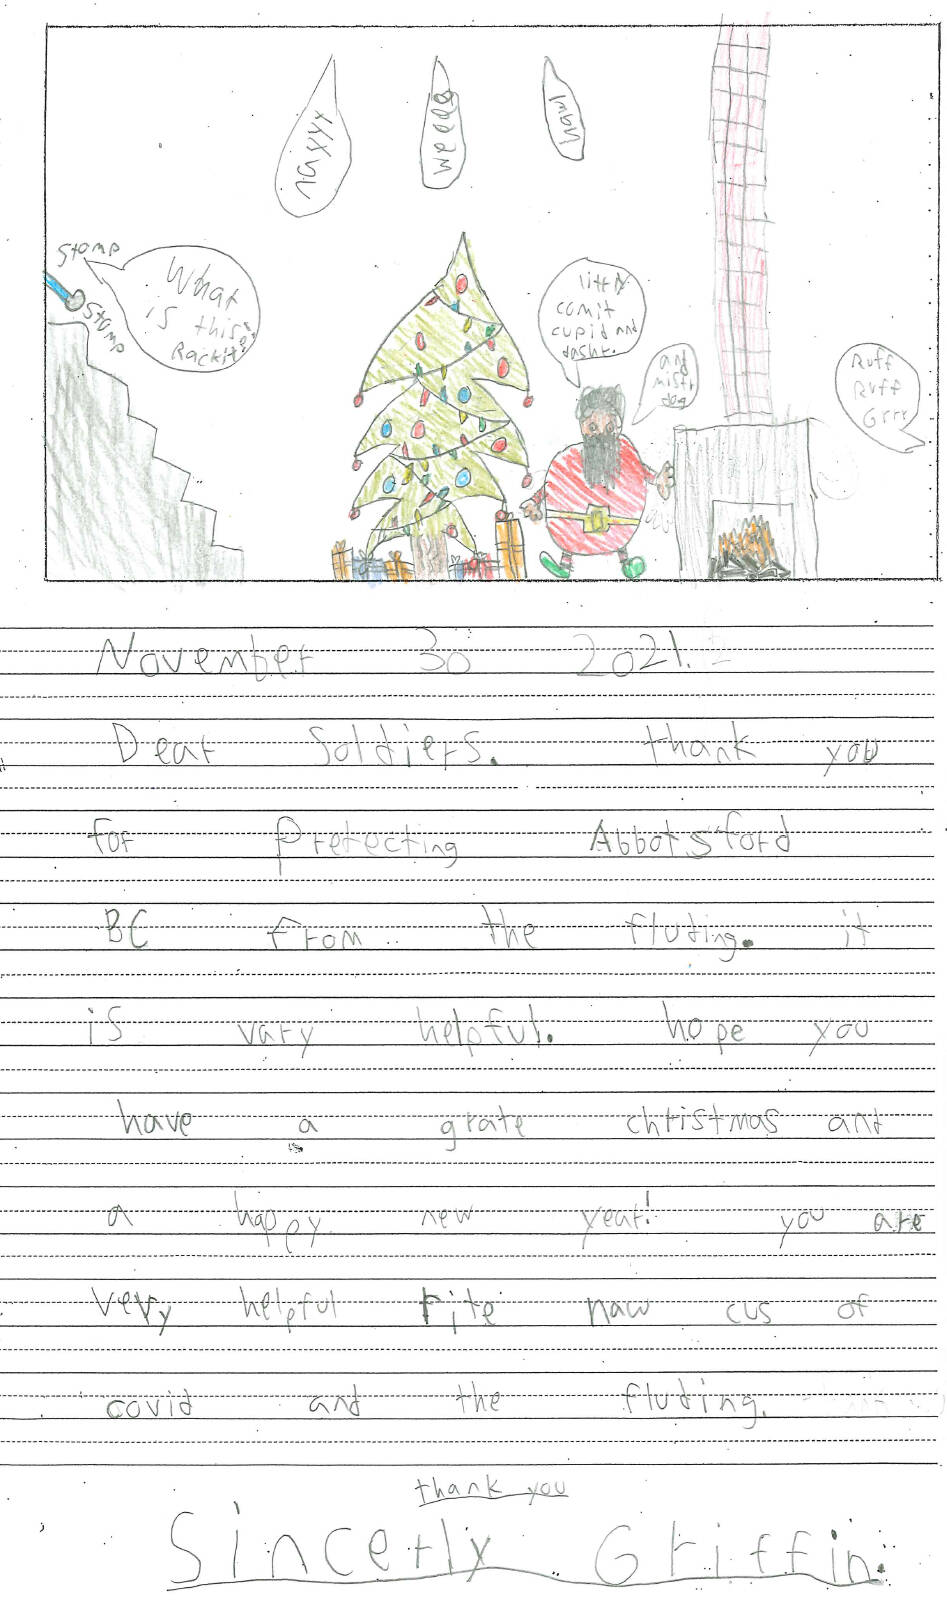 weeee
Stomp
Stomp
What
is this
Rackit?
littly
comit
cupid and
dashr.
and
mistr
dog
Ruff
Ruff
Grrr
November 30 2021.
Dear Soldiers. thank you
for Pretecting Abbotsford
BC from the fluding. it
is vary helpful. hope you
have a grate christmas and
a happy new year! you are
very helpful rite naw cus of
covid and the fluding.
thank you
Sincerly Griffin.